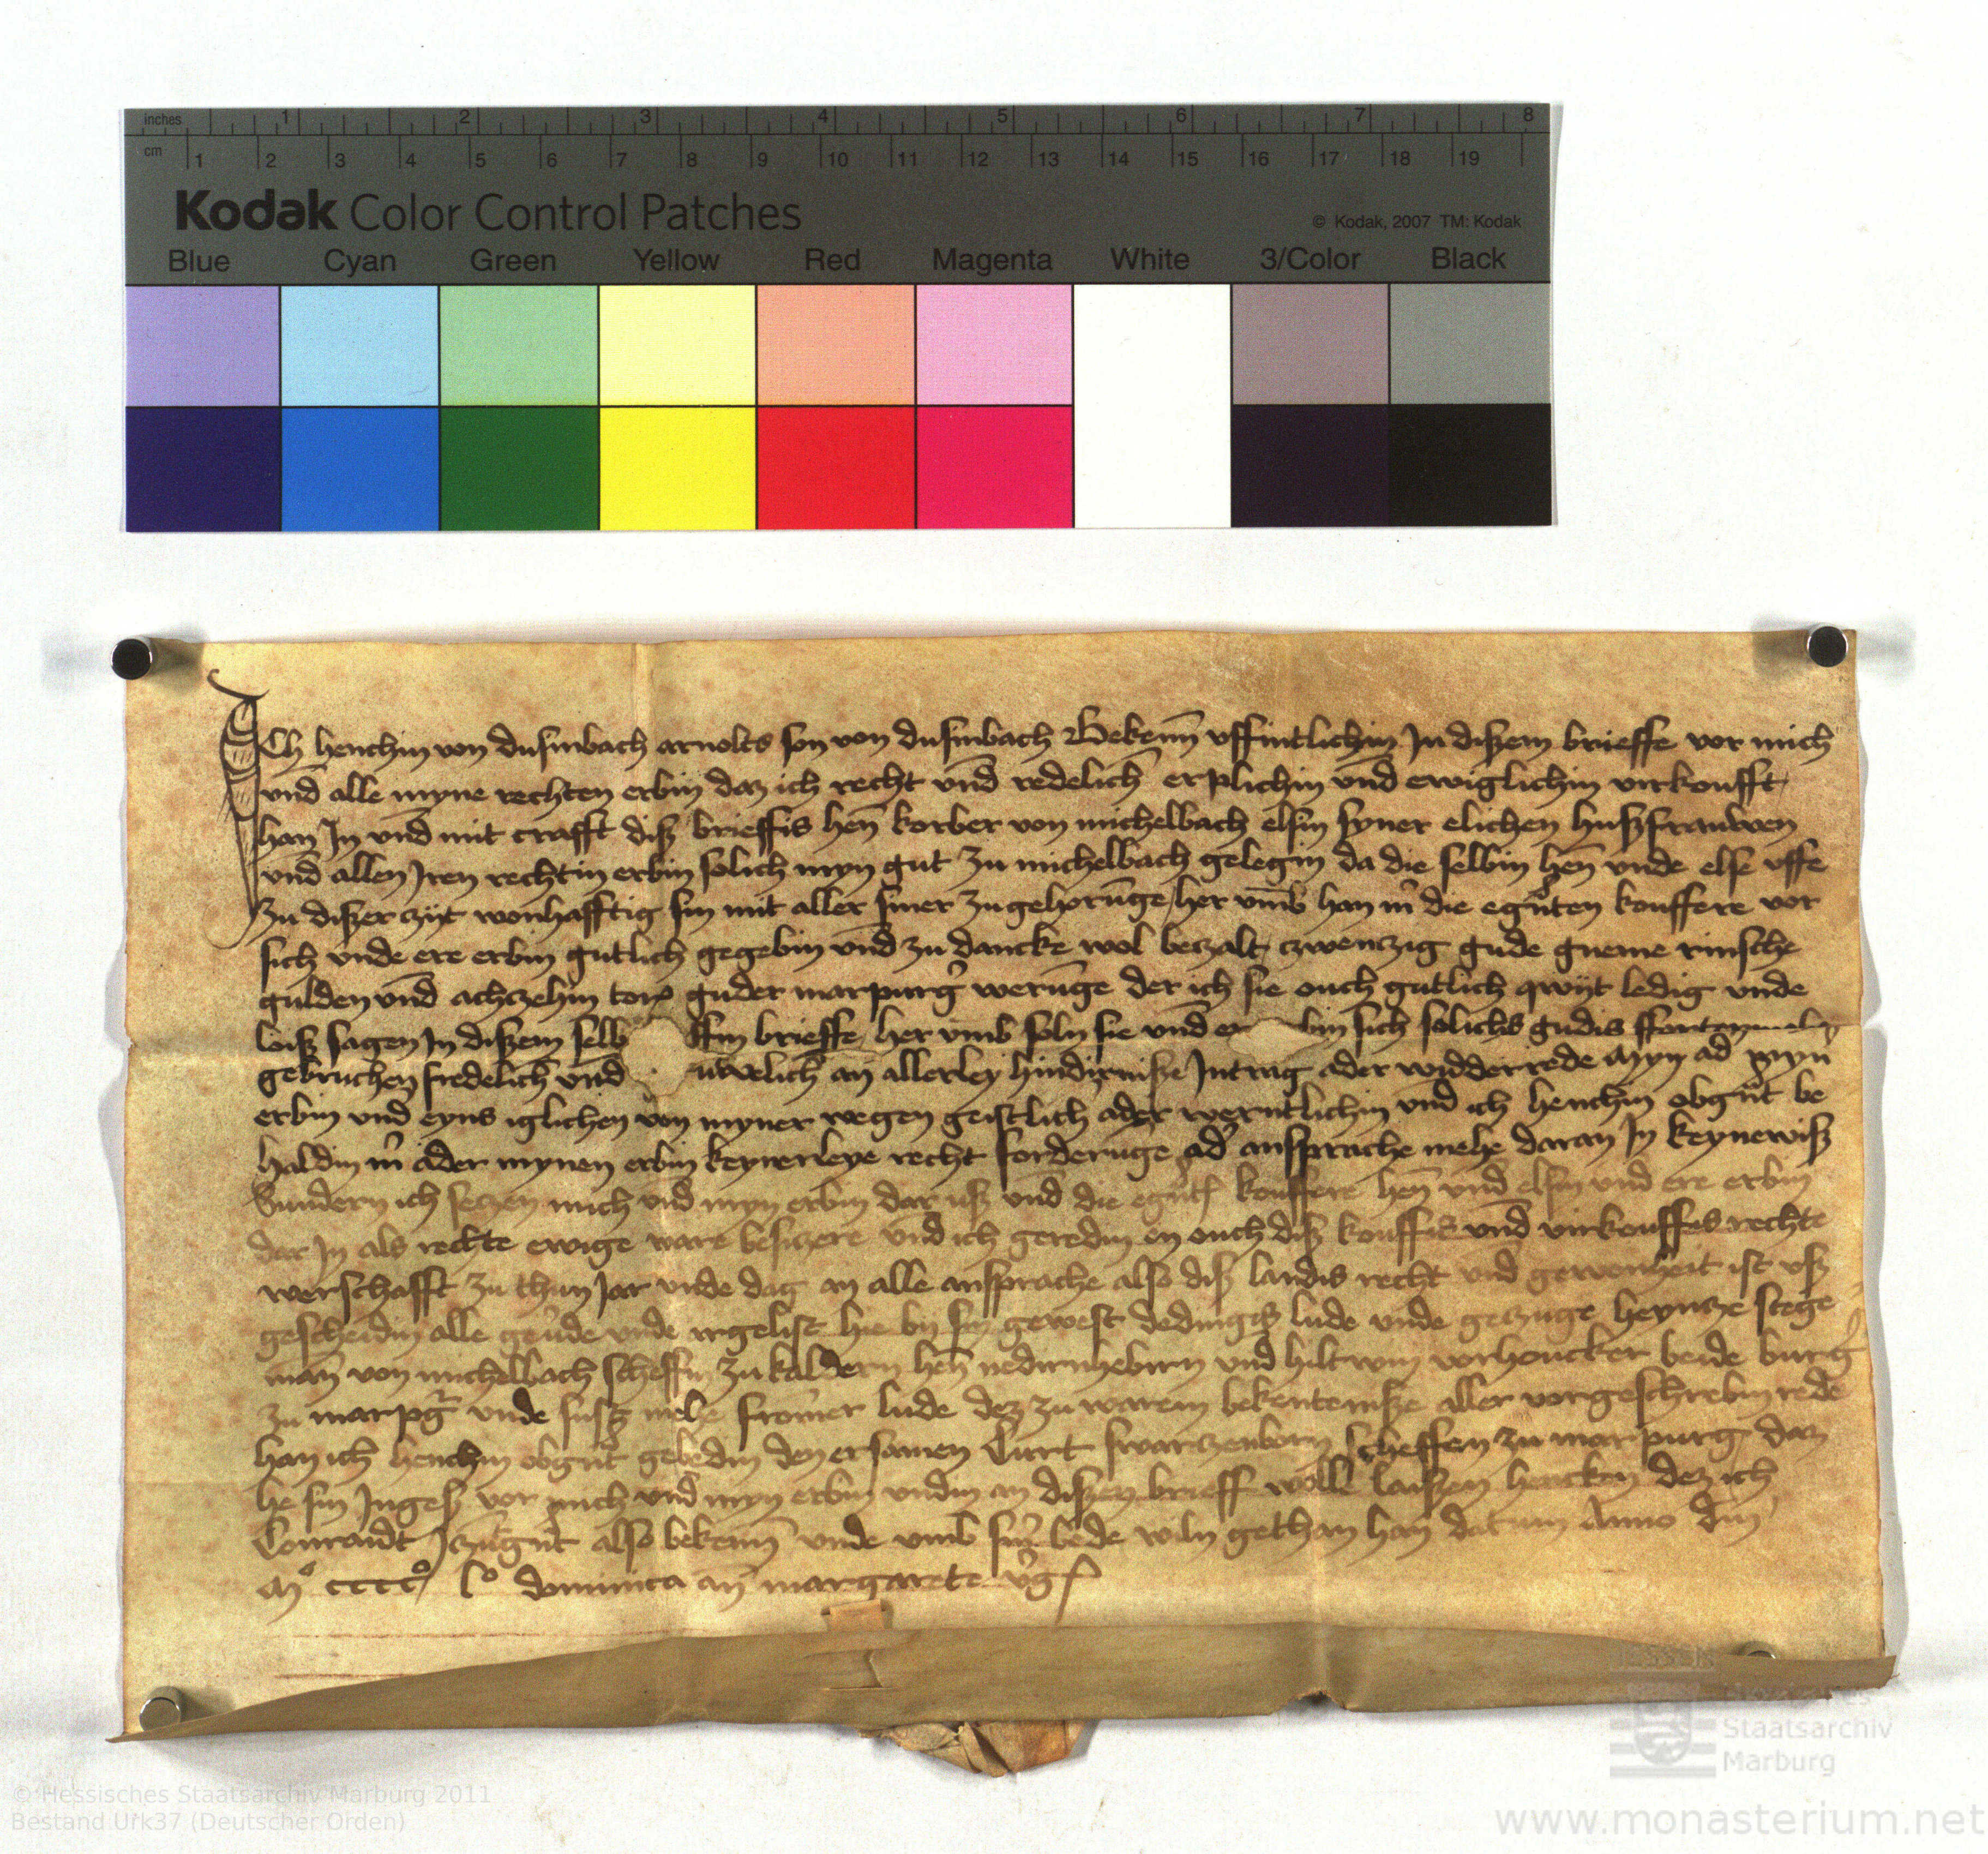 inches 1 2 3 4 5 6 7 8
cm 1 2 3 4 5 6 7 8 9 10 11 12 13 14 15 16 17 18 19
Kodak Color Control Patches
© Kodak, 2007 TM: Kodak
Blue Cyan Green Yellow Red Magenta White 3/Color Black
Ich henchin von dusinbach arnolts son von dusinbach Bekenn uffintlichin In dißem brieffe vor mich
und alle myne rechten erbin daz ich recht und redelich erplichin und ewiglichin virkoufft
han In und mit crafft diß brieffis hen korber von michelbach elsin syner elichen hußfrauwen
und allen Iren rechtin erbin solich myn gut zu michelbach gelegin da die selbin hen unde else uffe
zu dißer zyt wonhafftig sin mit aller siner zugehorunge her umb han mir die egnten kouffere vor
sich unde ere erbin gutlich gegebin und zu dancke wol beczalt czwenczig gude gneme rinsche
gulden und achczehin torn guder marpurg werunge der ich sie ouch gutlich qwyt ledig unde
loiß sagen In dißem selb ffin brieffe her umb soln sie und er bin sich solichs gudis
gebruchen fredelich und uwelich an allerley hindirniße Intrag ader widderrede myn ad myn
erbin und eyns iglichen von myner wegen geistlich ader werntlichin und ich henchin obgnt be
haldin mir ader mynen erbin keynerleye recht forderunge ad ansprache mehe daran In keynewiß
Sundern ich seczen mich und myn erbin dar uß und die egnten kouffere hen und elsin und ere erbin
dar In als rechte ewige ware besiczere und ich geredin en ouch diß kouffis und virkouffis rechte
werschafft zu thun Jar unde dag an alle ansprache also diß landis recht und gewonheit ist uß
gescheidin alle geverde unde argelist hie by sin gewest dedinges lude unde geczuge heyncze stege
man von michelbach scheffin zu kaldern hen nedirnhebirn und hiltwin vorhoucker beide burg
zu marpg unde susz mehe fromer lude dez zu warem bekenteniße aller vorgeschrebin rede
han ich henchin obgnt gebedin den ersamen Curt swarczenborn scheffen zu marpurg daz
he sin Ingeß vor mich und myn erbin undin an dißen brieff woll laißen hencken dez ich
Conraidt Iczugnt also bekenn unde umb sin bede wiln gethan han datum Anno dni
Mo cccco lo dominica an margarete virg
© Hessisches Staatsarchiv Marburg 2011
Bestand Urk37 (Deutscher Orden)
Hessisches
Staatsarchiv
Marburg
www.monasterium.net